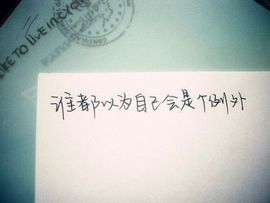 LIKE TO live IN YOUR
谁都以为自己会是个例外